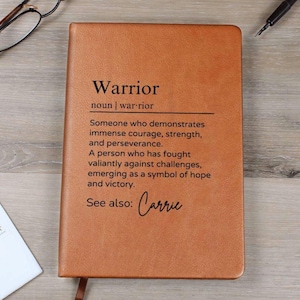 Warrior
noun | war·rior
Someone who demonstrates
immense courage, strength,
and perseverance.
A person who has fought
valiantly against challenges,
emerging as a symbol of hope
and victory.
See also: Carrie